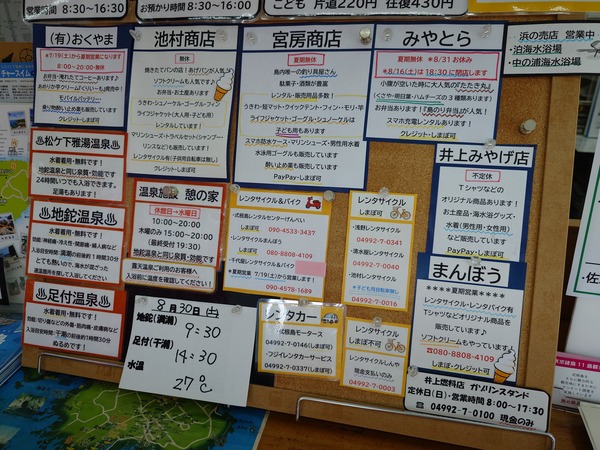 営業時間 8:30~16:30
お預かり時間 8:30~16:30
こども 片道220円 往復430円
浜の売店 営業中
・泊海水浴場
・中の浦海水浴場
(有)おくやま
*7/19(土)から夏期営業になります
8:00~20:00・無休
お弁当・淹れたてコーヒーあります♪
モバイルバッテリー…
クレジット・しま可
池村商店
無休
焼きたてパンの店!あげパンが人気
ソフトクリームも人気です♪
お弁当・お土産あります
うきわ・シュノーケル・ゴーグル・フィン
ライフジャケット(大人用・子ども用)
レンタルしています!
マリンシューズ・トラベルセット(シャンプー・
リンスなど)も販売しています
レンタサイクル有(子供用自転車は無し)
クレジット・しま可
宮房商店
夏期無休
島内唯一の釣り具屋さん
駄菓子・酒類が豊富
レンタル・販売用品多数!
うきわ・短マット・クイックテント・フィン・モリ・竿
ライフジャケット・ゴーグル・シュノーケルは
子ども用もあります
スマホ防水ケース・マリンシューズ・男性用水着
水泳用ゴーグルも販売しています
酔い止め薬も販売しています
PayPay・しま可
みやとら
夏期無休 *8/31お休み
*8/16(土)は18:30に閉店します
小腹が空いた時に大人気『たたき丸』
(くさや・明日葉・ハムチーズの3種類あります)
お弁当あります『島のり弁当』が人気!
スマホ充電レンタルあります!
クレジット・しま可
松ケ下雅湯温泉
水着着用・無料です!
地鉈温泉と同じ泉質・効能です
24時間いつでも入浴できます。
足湯もあります!
温泉施設 憩の家
休館日→水曜日
10:00~20:00
水曜のみ 15:00~20:00
(最終受付 19:30)
地鉈温泉と同じ泉質・効能です
露天温泉ご利用のお客様へ
入浴前に温度を確認ください
地鉈温泉
水着着用・無料です!
効能:神経痛・冷え性・関節痛・婦人病など
入浴目安時間:満潮の前後約1時間30分
とても熱いので、海水が混ざった
適温箇所を探して入浴ください!
足付温泉
水着着用・無料です!
効能:切り傷などの外傷・筋肉痛・皮膚病など
入浴目安時間:干潮の前後約1時間30分
ぬるめです!
レンタサイクル&バイク
・式根島レンタルセンターげんべい
しま可 090-4533-3437
・レンタサイクルまんぼう
しま可 080-8808-4109
・千代屋レンタサイクル&バイク
*夏期営業 7/19(土)から営業します!
090-4578-1689
レンタサイクル
しま可
・浅野レンタサイクル
04992-7-0341
・清水屋レンタサイクル
04992-7-0040
・池村レンタサイクル
*子ども用自転車無し
04992-7-0016
井上みやげ店
不定休
Tシャツなどの
オリジナル商品あります!
お土産品・海水浴グッズ・
水着(男性用・女性用)
など販売しています
PayPay・しま可
まんぼう
****夏期営業****
レンタサイクル・レンタルバイク有
Tシャツなどオリジナル商品を
販売しています♪
ソフトクリームもやっています!
☎080-8808-4109
しま・クレジット可
レンタカー
・式根島モータース
04992-7-0146(しま可)
・フジイレンタカーサービス
04992-7-0337(しま可)
レンタサイクル
しま不可
・レンタサイクルしんや
現金支払いのみ
04992-7-0003
8月30日(土)
地鉈(満潮)
9:30
足付(干潮)
14:30
水温
27℃
井上燃料店 ガソリンスタンド
定休日(日)・営業時間 8:00~17:30
☎ 04992-7-0100 現金のみ